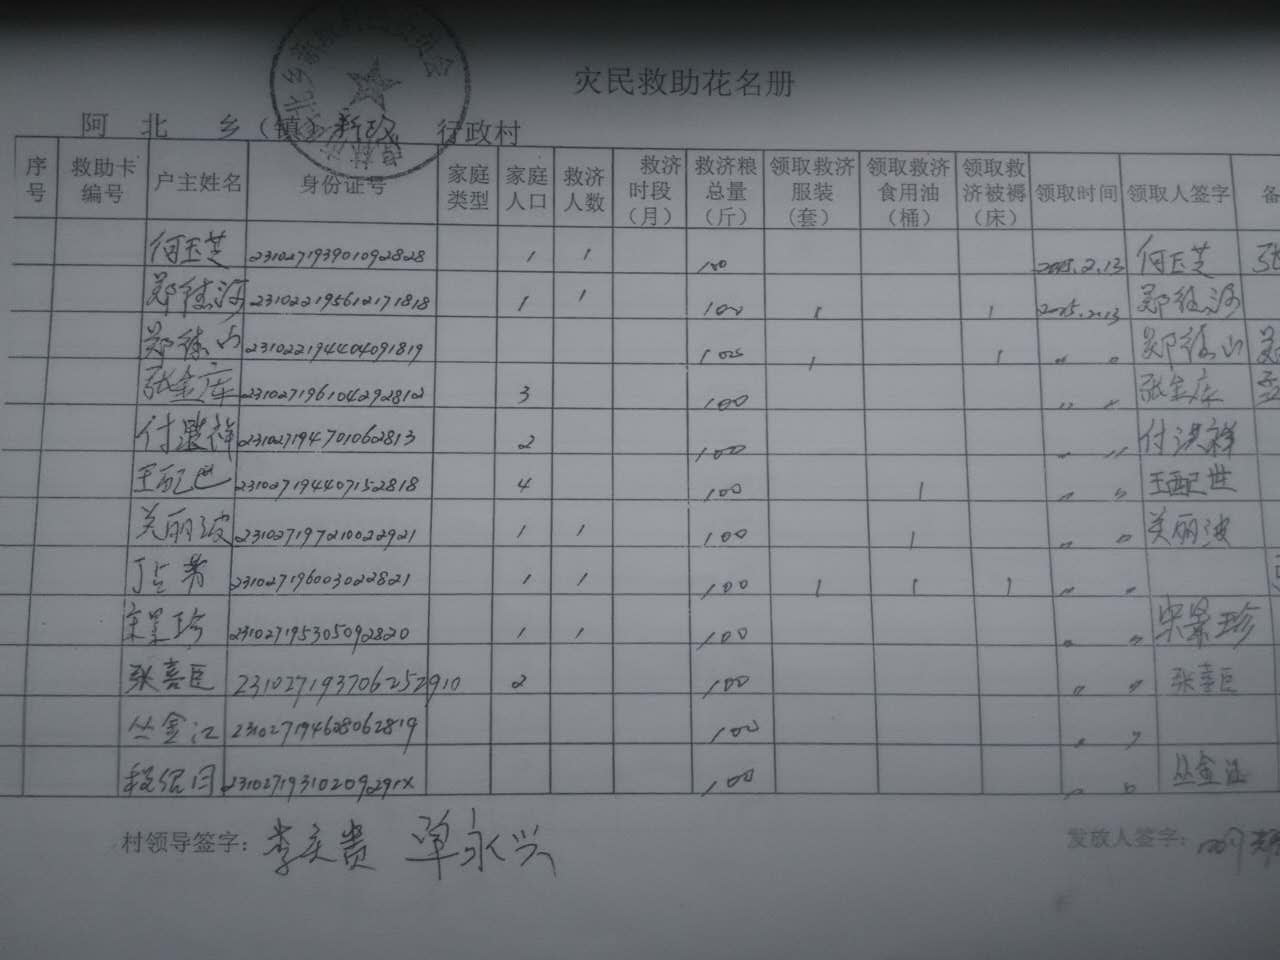 灾民救助花名册
阿 北 乡（镇）新政 行政村
序号 救助卡编号 户主姓名 身份证号 家庭类型 家庭人口 救济人数 救济时段（月） 救济粮总量（斤） 领取救济服装（套） 领取救济食用油（桶） 领取救济被褥（床） 领取时间 领取人签字 备
何玉芝 231027193901092828 1 1 100 2015.2.13 何玉芝 张
郑德海 231022195612171818 1 1 100 1 1 2015.2.13 郑德海
郑德山 231022194404091819 100 1 1 〃 〃 郑德山
张金库 231027196104292812 3 100 〃 〃 张金库
付洪祥 231027194701062813 2 100 〃 〃 付洪祥
王配 231027194407152818 4 100 1 〃 〃 王配世
关丽波 231027197210022921 1 1 100 1 〃 〃 关丽波
231027196003022821 1 1 100 1 1 1 〃 〃
宋景珍 231027195305092820 1 1 100 〃 〃 宋景珍
张喜臣 231027193706252910 2 100 〃 〃 张喜臣
丛金江 231027194628062819 100 〃 〃
23102719310209291X 100 〃 〃 丛金江
村领导签字： 李庆贵 单永兴 发放人签字：